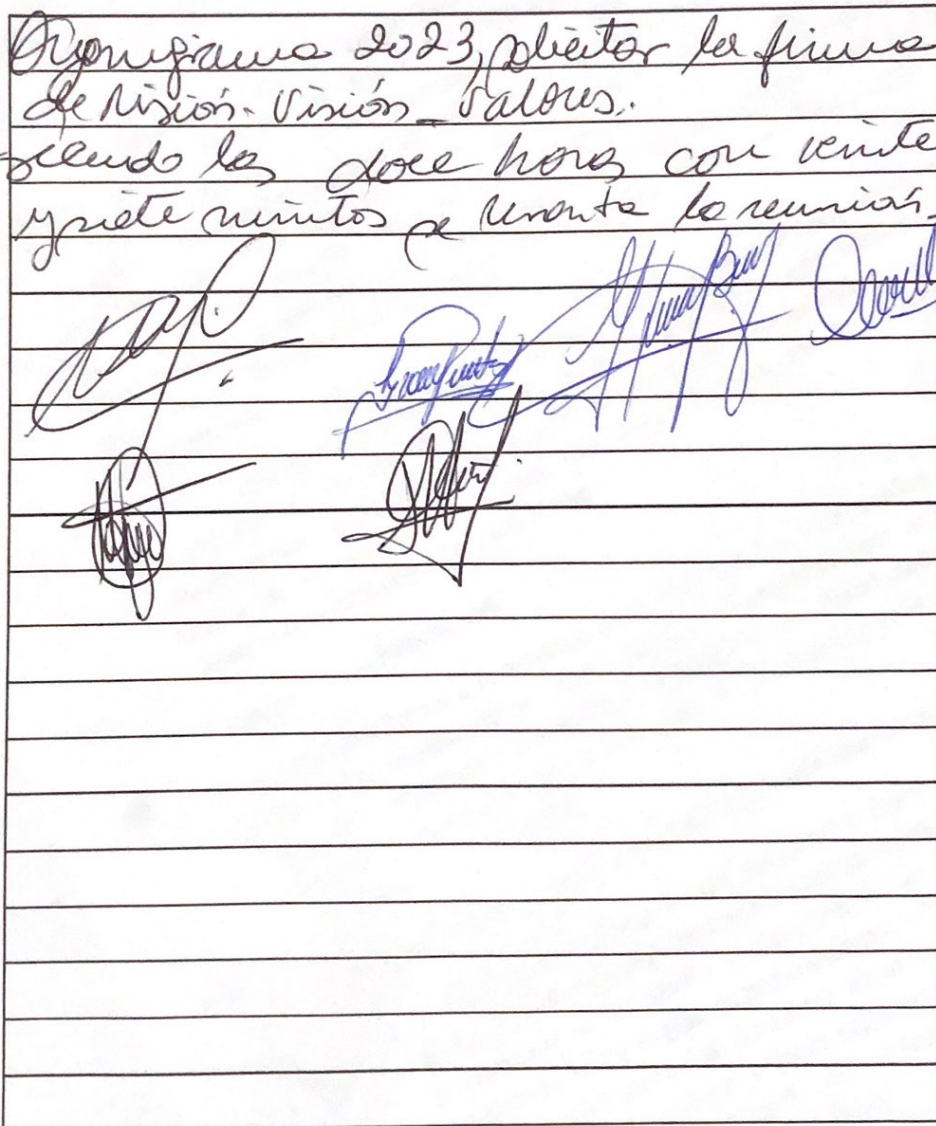 Organigrama 2023, solicitar la firma
de Misión. Visión - Valores.
siendo las doce horas con veinte
y siete minutos se levanta la reunión.